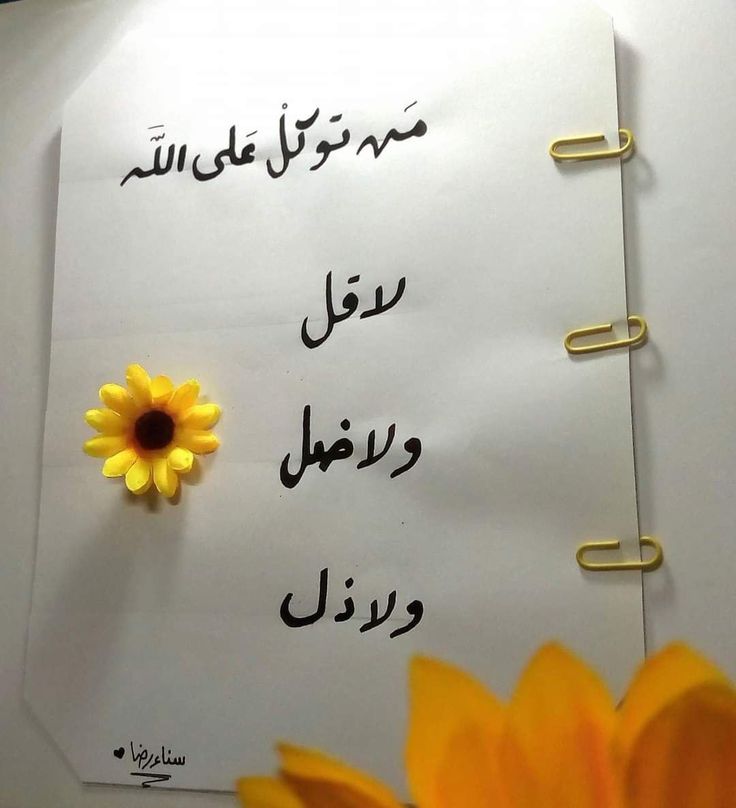 مَن توكلْ عَلى اللَّه
لا قل
ولا ضل
ولا ذل
سناء رضا